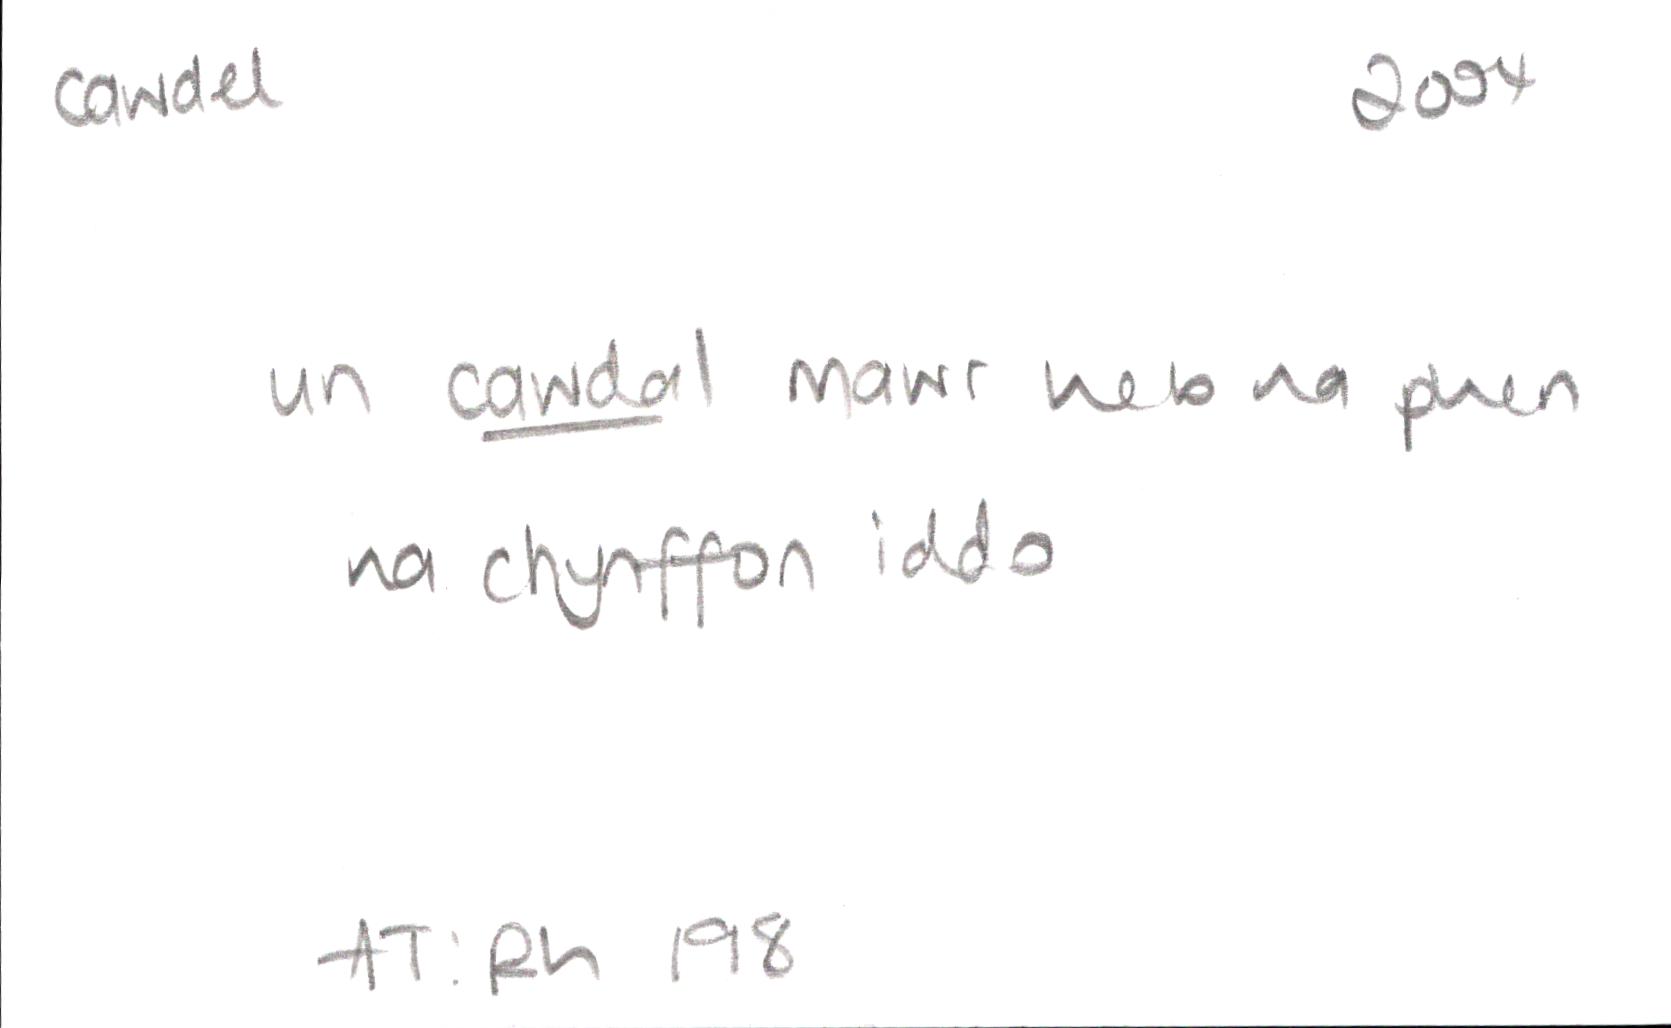 cawdel 2004
un cawdal mawr heb na phen
na chynffon iddo
AT: Rh 198